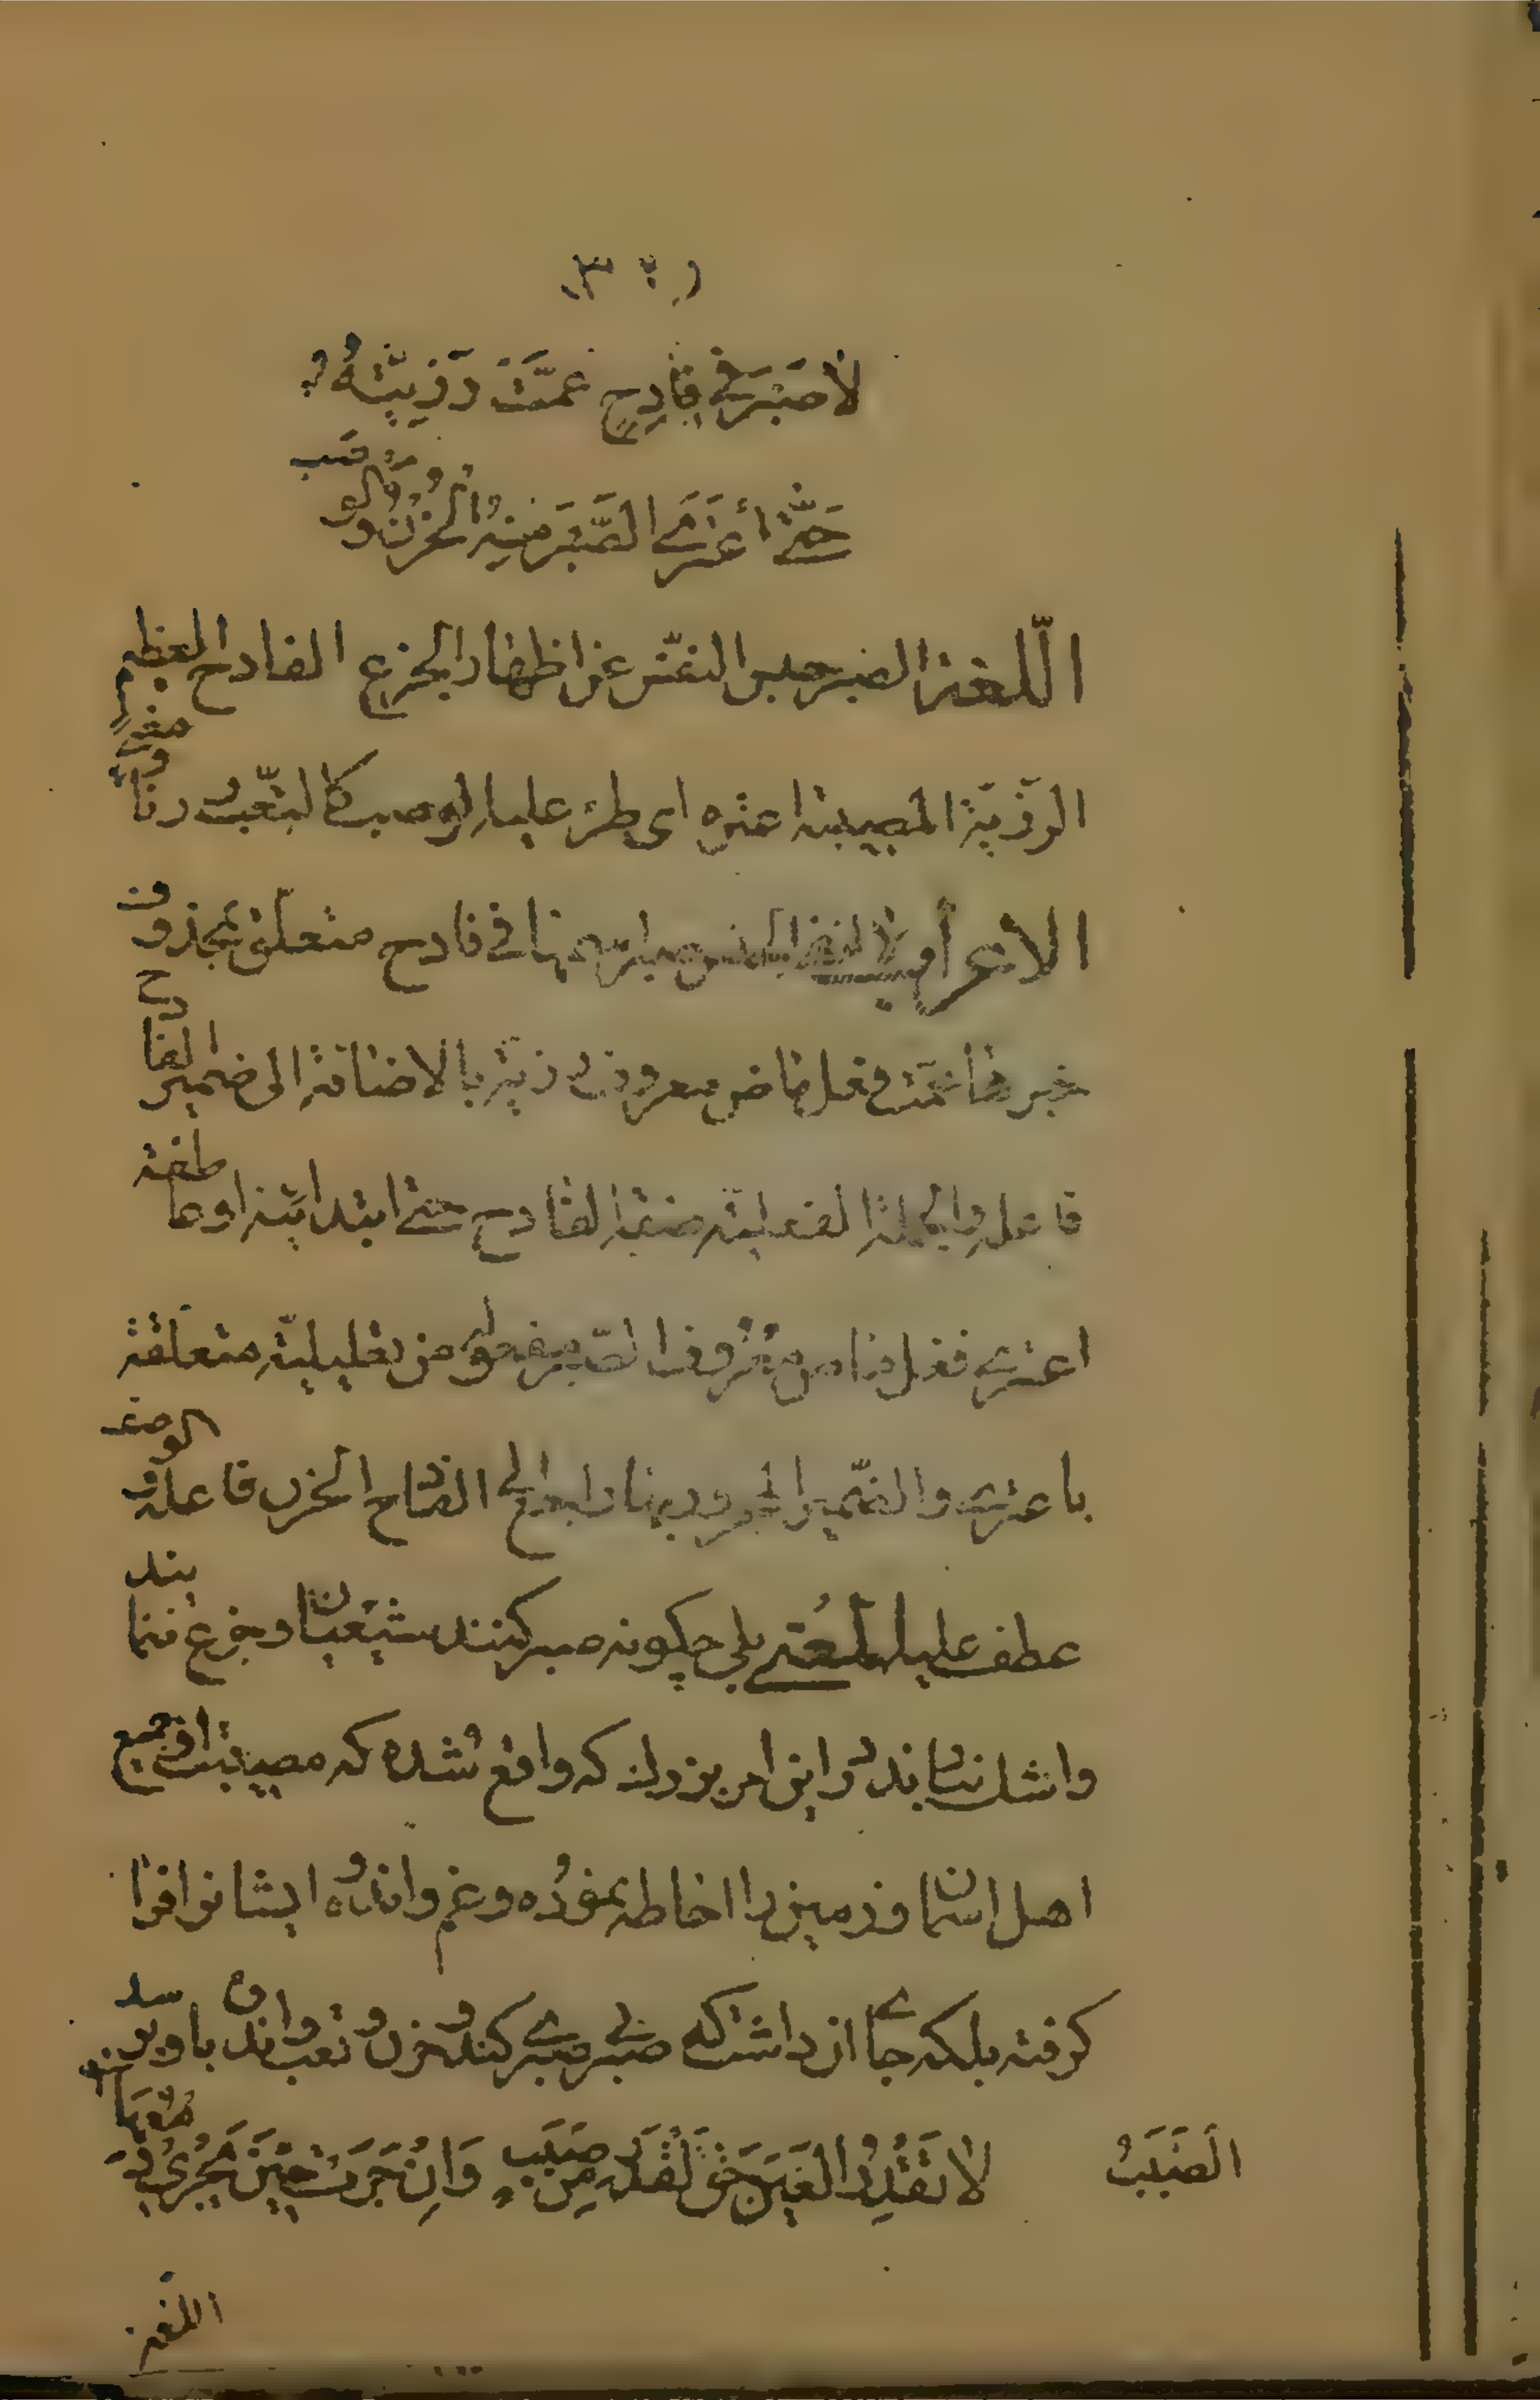 لا صَبْرَ فی فادِحٍ عَمَّتْ رَزِیَّتُهُ
حَتّی أعْتَرَی الصَّبْرَ مِنْهُ الحُزْنُ وَالوَصَبُ
اللّغة الصبر حبس النفس عن اظهار الجزع الفادح العظیم
الرزیّة المصیبة اعتره ای طرء علیه الوصب کالتّعب وزنا و معنی
الاعراب لا لنفی الجنس صبر اسمها فی فادح متعلّق بمحذوف
خبرها عمّت فعل ماض معروف رزیّة بالاضافة الی ضمیر الفادح
فاعله والجملة الفعلیّة صفة الفادح حتی ابتدائیة او عاطفة
اعتری فعل ماض معروف الصّبر مفعوله من تعلیلیّة متعلّقة
باعتری والضّمیر المجرور بها راجع الی الفادح الحزن فاعله و الوصب
عطف علیه المعنی بلی چکونه صبر کنند شیعیان و جزع ننمایند
واشک نباند در این امر بزرك که واقع شده که مصیبت او جمیع
اهل اسمان و زمین را احاطه نموده و غم و اندوه ایشانرا فرا
کرفته بلکه جای ان داشت که صبر بی صبری کند و حزن و تعب و اندوه باو برسد
الصَّبَبُ لا تَقْدِرُ العَیْنُ حَقَّ قَدْرِهِ مِنْ صَبَبٍ وَاِنْ جَرَتْ حِیْنَ یَجْرِی
اللغة